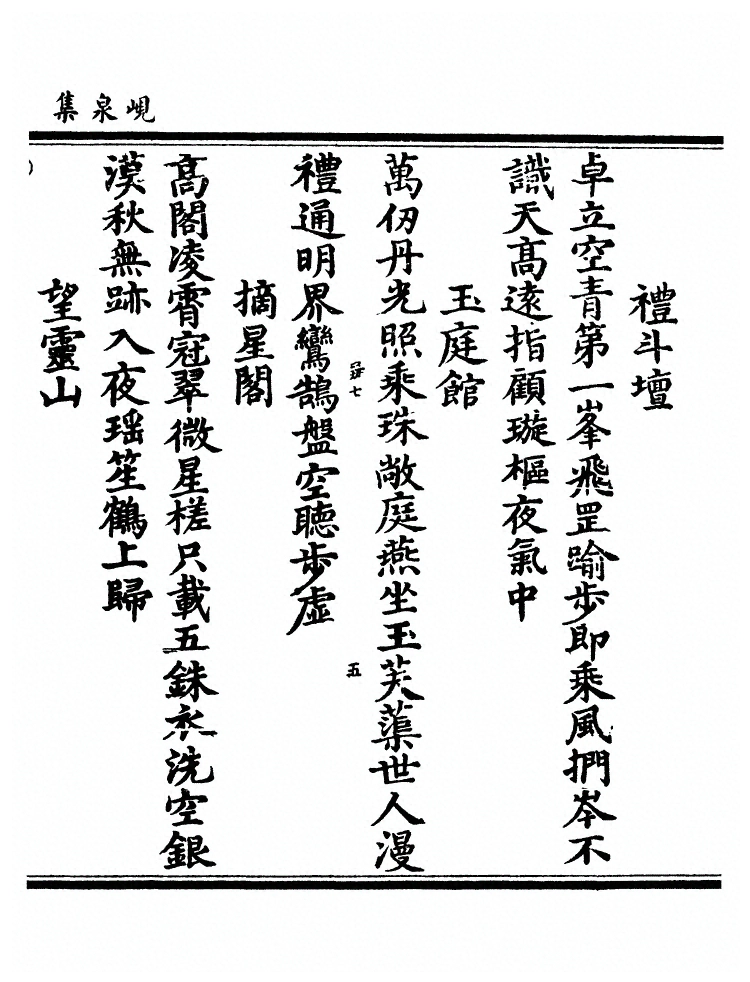 峴泉集
禮斗壇
卓立空青第一峯飛罡踰步即乘風捫岑不
識天高遠指顧璇樞夜氣中
玉庭館
萬仞丹光照乘珠敞庭燕坐玉芙蕖世人漫
禮通明界鸞鵠盤空聽步虛
摘星閣
高閣凌霄冠翠微星槎只載五銖衣洗空銀
漠秋無跡入夜瑶笙鶴上歸
望靈山
五